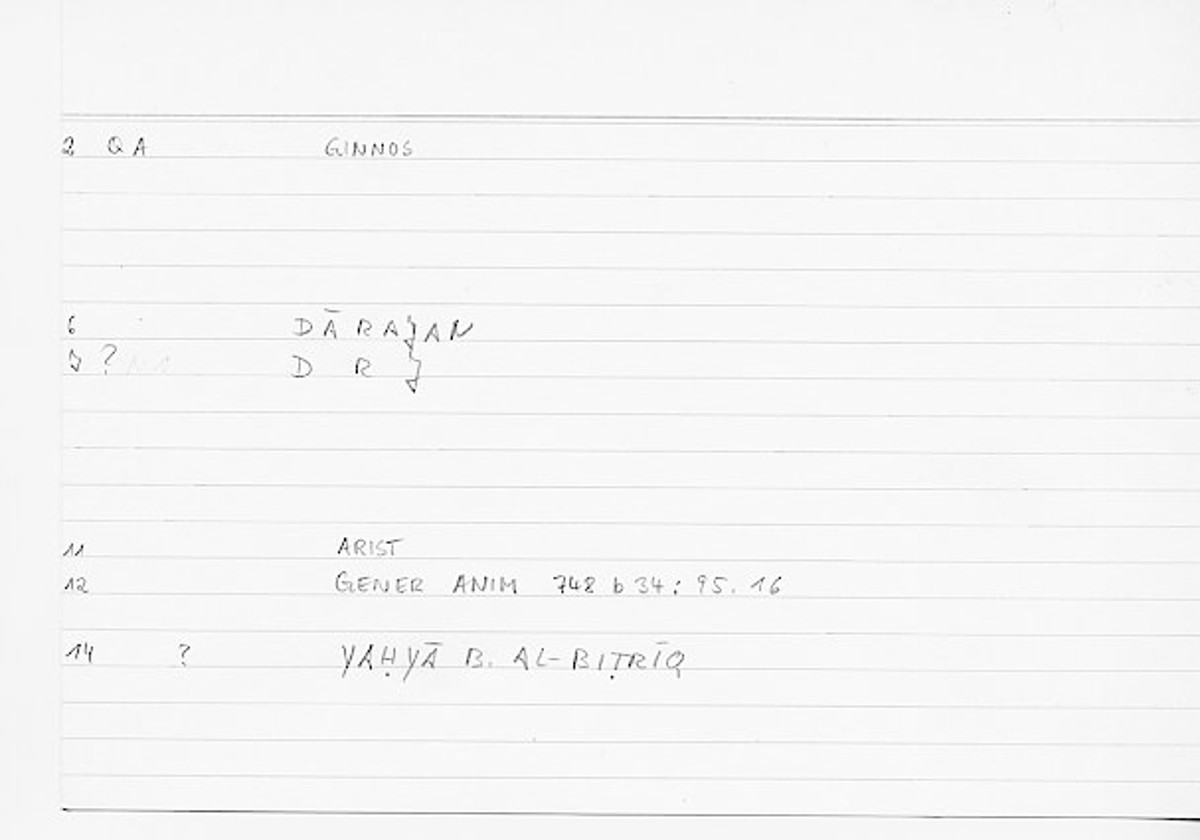 2 QA GINNOS
6 DĀRAJAN
7 ? D R J
11 ARIST
12 GENER ANIM 748 b 34 : 95. 16
14 ? YAḤYĀ B. AL-BIṬRĪQ